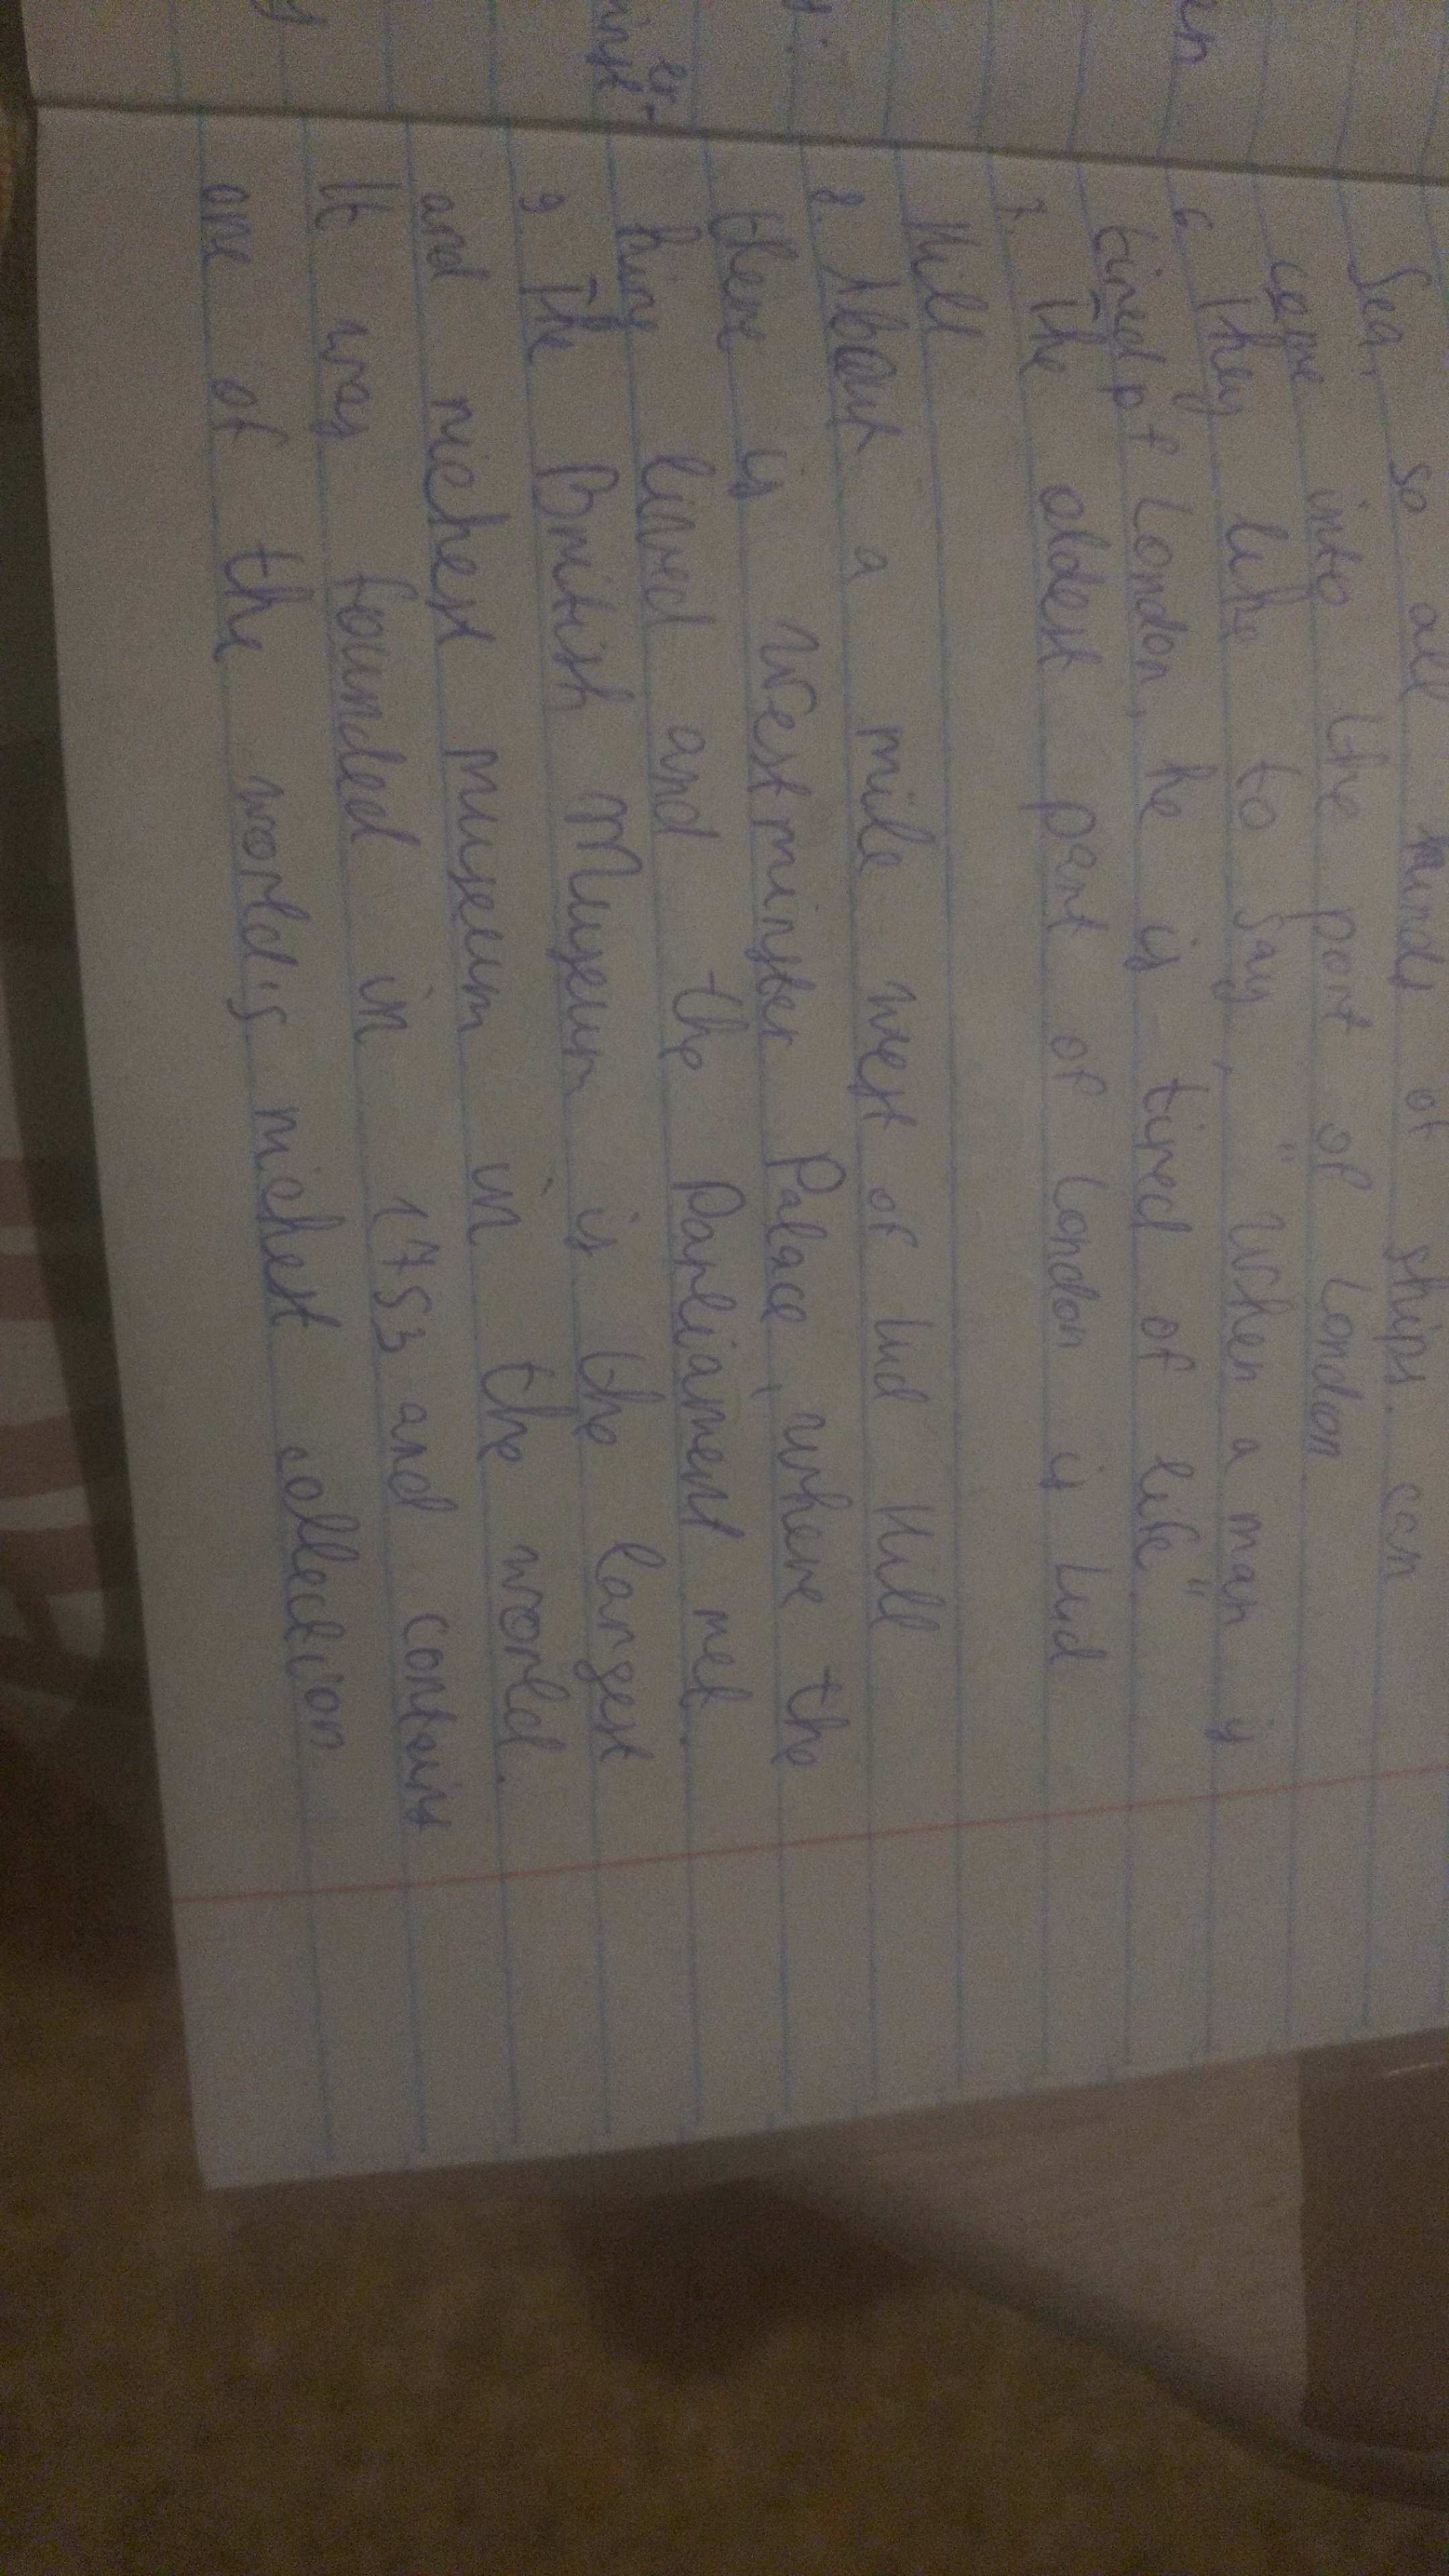 Sea, so all kinds of ships can
come into the port of London
6. They like to say, "When a man is
tired of London, he is tired of life"
7. The oldest part of London is Lud
Hill
8. About a mile west of Lud Hill
there is Westminster Palace, where the
king lived and the Parliament met.
9. The British Museum is the largest
and richest museum in the world.
It was founded in 1753 and contains
one of the world's richest collection